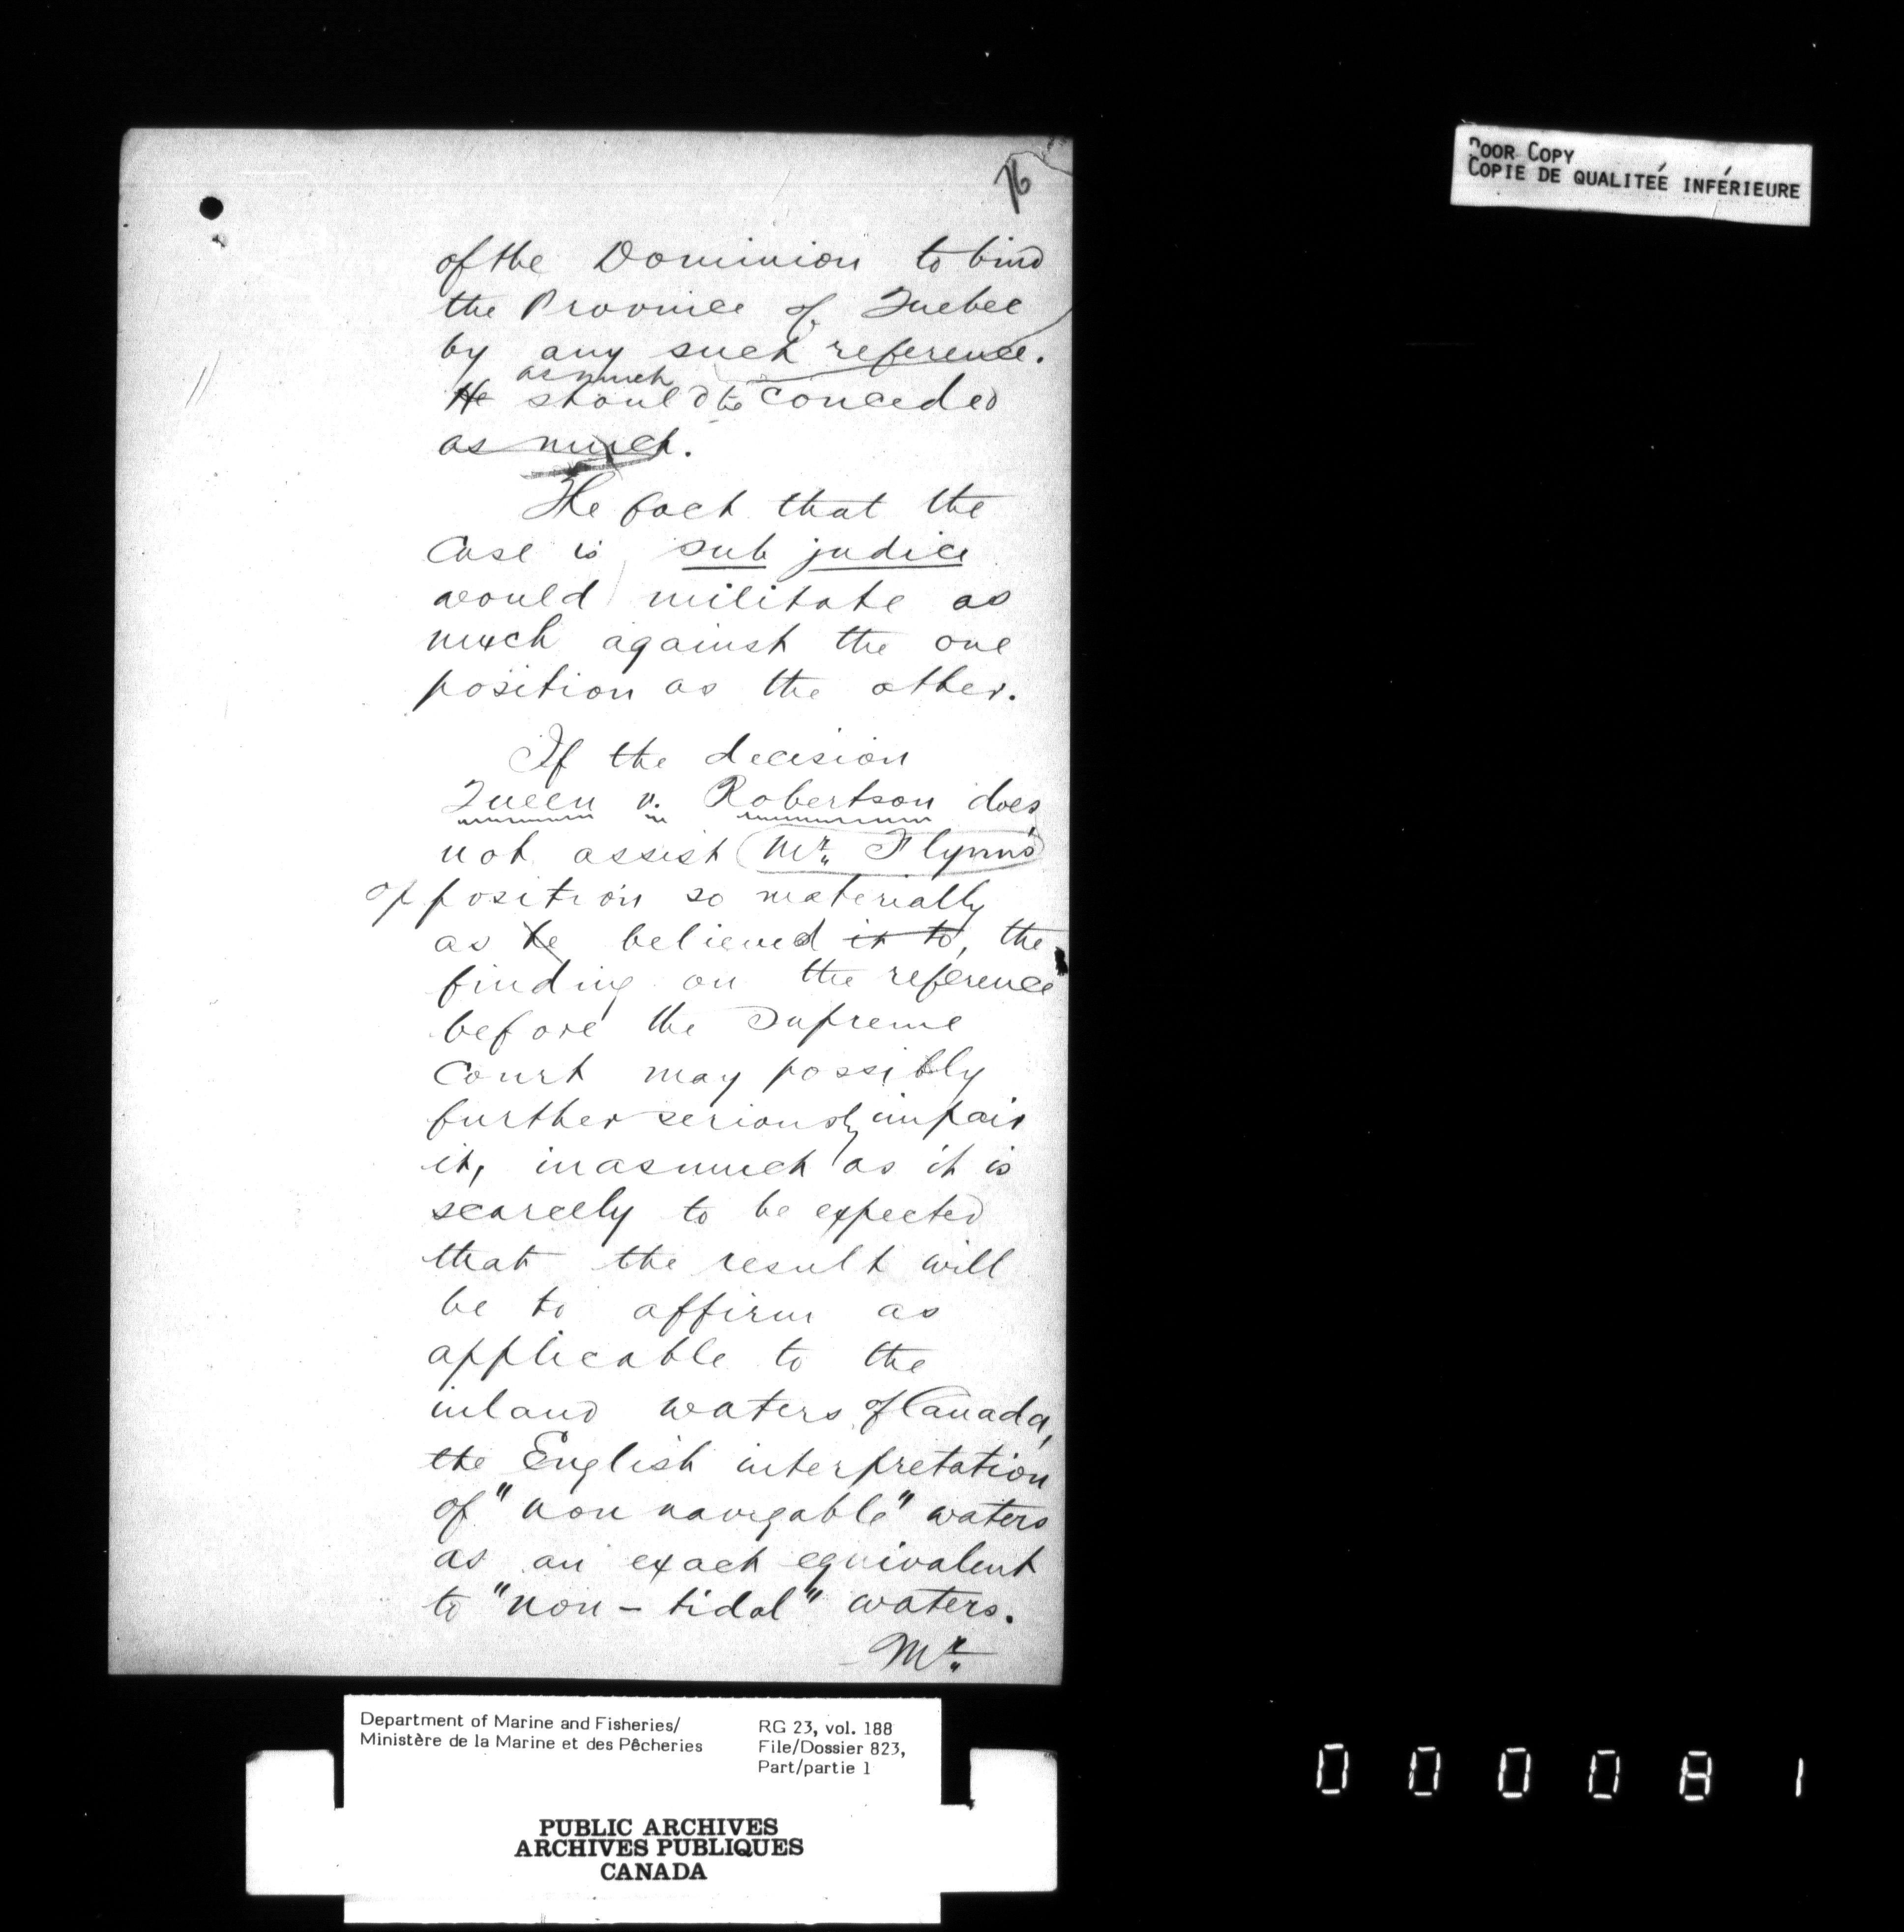 76
POOR COPY
COPIE DE QUALITEÉ INFÉRIEURE
of the Dominion to bind
the Province of Quebec
by any such reference.
as much
He should be conceded
as much.
The fact that the
Case is sub judice
would militate as
much against the one
position as the other.
If the decision
Queen v. Robertson does
not assist Mr. Flynn's
opposition so materially
as he believed it to, the
finding on the reference
before the Supreme
Court may possibly
further seriously impair
it, inasmuch as it is
scarcely to be expected
that the result will
be to affirm as
applicable to the
inland waters of Canada,
the English interpretation
of "non navigable" waters
as an exact equivalent
to "non-tidal" waters.
Mr.
Department of Marine and Fisheries/
Ministère de la Marine et des Pêcheries
RG 23, vol. 188
File/Dossier 823,
Part/partie 1
PUBLIC ARCHIVES
ARCHIVES PUBLIQUES
CANADA
000081